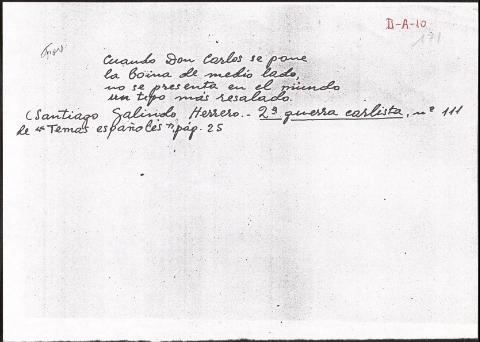 D-A-10
171
Cuando Don Carlos se pone
la boina de medio lado,
no se presenta en el mundo
un tipo más resalado.
(Santiago Galindo Herrero.- 2ª guerra carlista, nº 111
de "Temas españoles", pág. 25